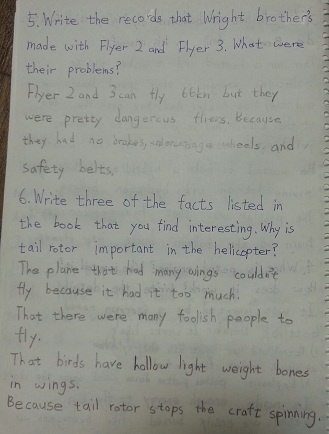 5. Write the records that Wright brother's
made with Flyer 2 and Flyer 3. What were
their problems?
Flyer 2 and 3 can fly but they
were pretty dangerous fliers. Because
they had no brakes, wheels, and
safety belts.
6. Write three of the facts listed in
the book that you find interesting. Why is
tail rotor important in the helicopter?
The plane that had many wings couldn't
fly because it had it too much.
That there were many foolish people to
fly.
That birds have hollow light weight bones
in wings.
Because tail rotor stops the craft spinning.